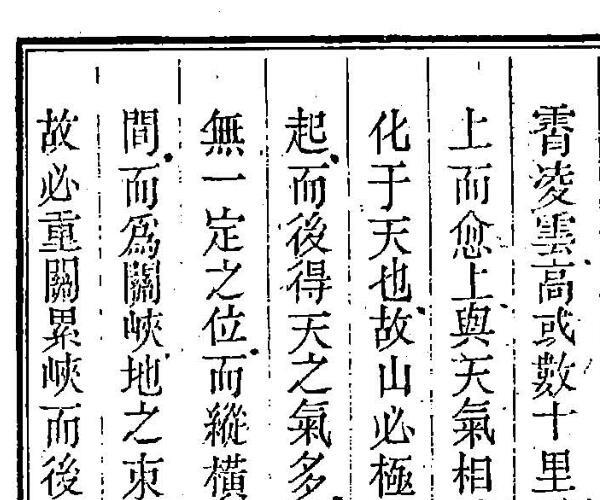 霄凌雲高或數十里
上而愈上與天氣相
化于天也故山必極
起而後得天之氣多
無一定之位而縱橫
間而爲關峽地之束
故必重關累峽而後